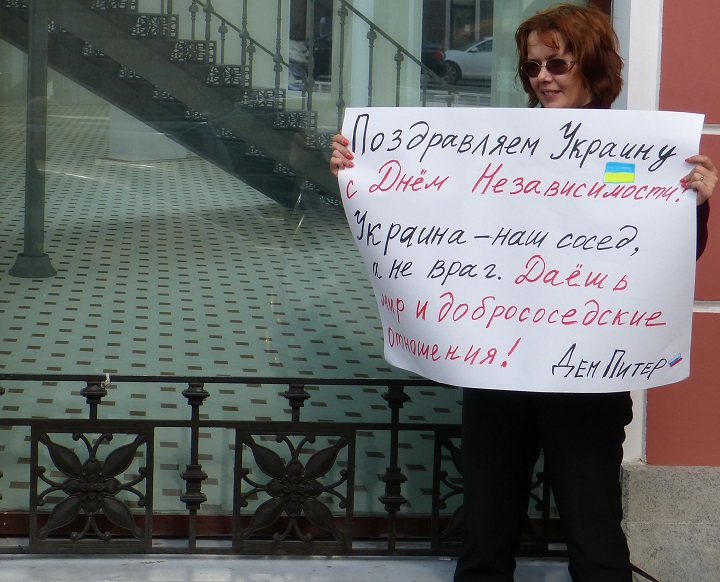 Поздравляем Украину
с Днём Независимости!
Украина – наш сосед,
а не враг. Даёшь
мир и добрососедские
отношения!
ДемПитер